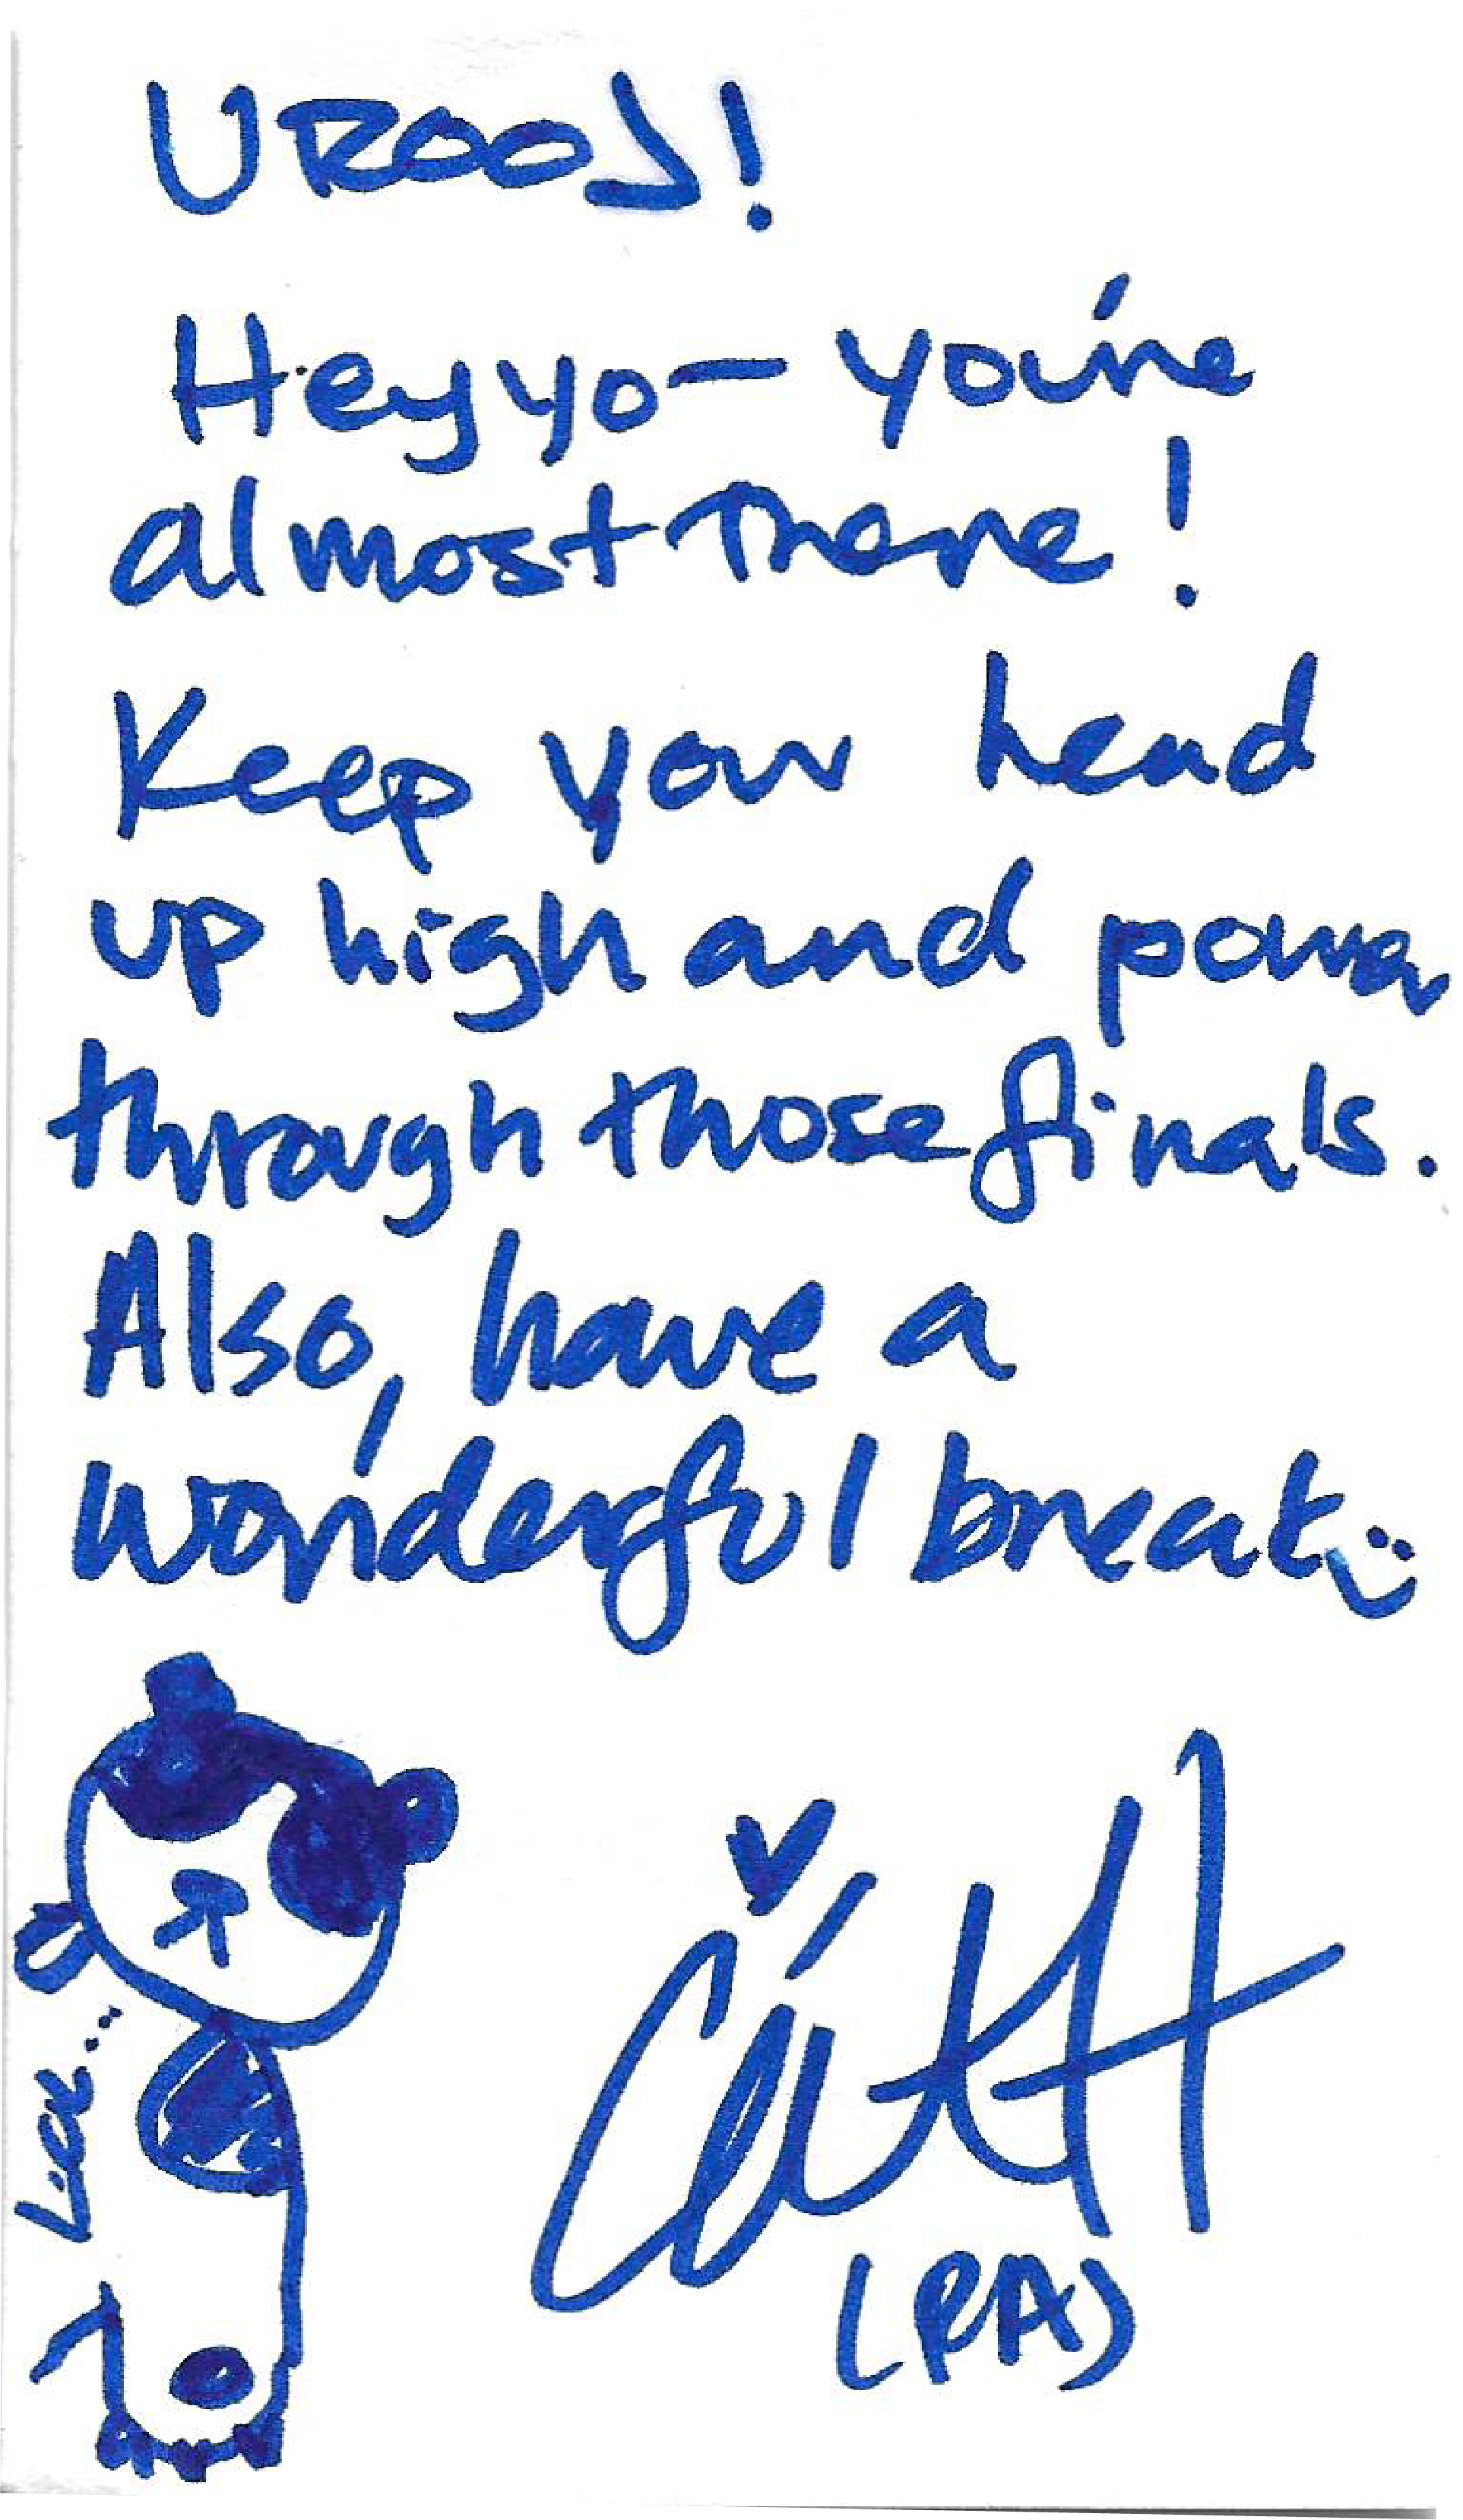 UROOJ!
Hey yo— you're
almost there!
Keep your head
up high and power
through those finals.
Also, have a
wonderful break :)
(RA)